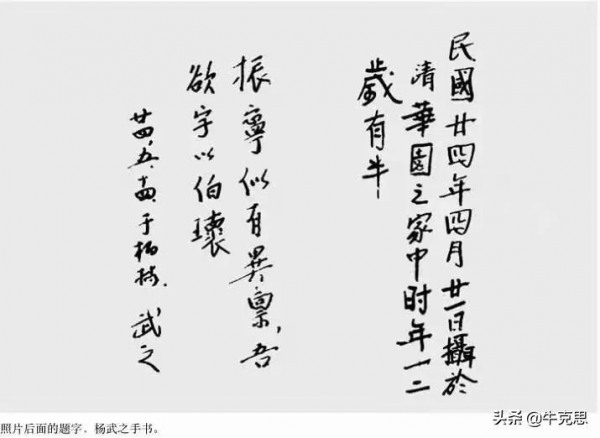 民國廿四年四月廿一日攝於
清華園之家中时年十二
歲有半
振寧似有異稟，吾
欲字以伯瓌
廿四、五、十四、于柏林、武之
照片后面的题字．杨武之手书。
头条 @牛克思